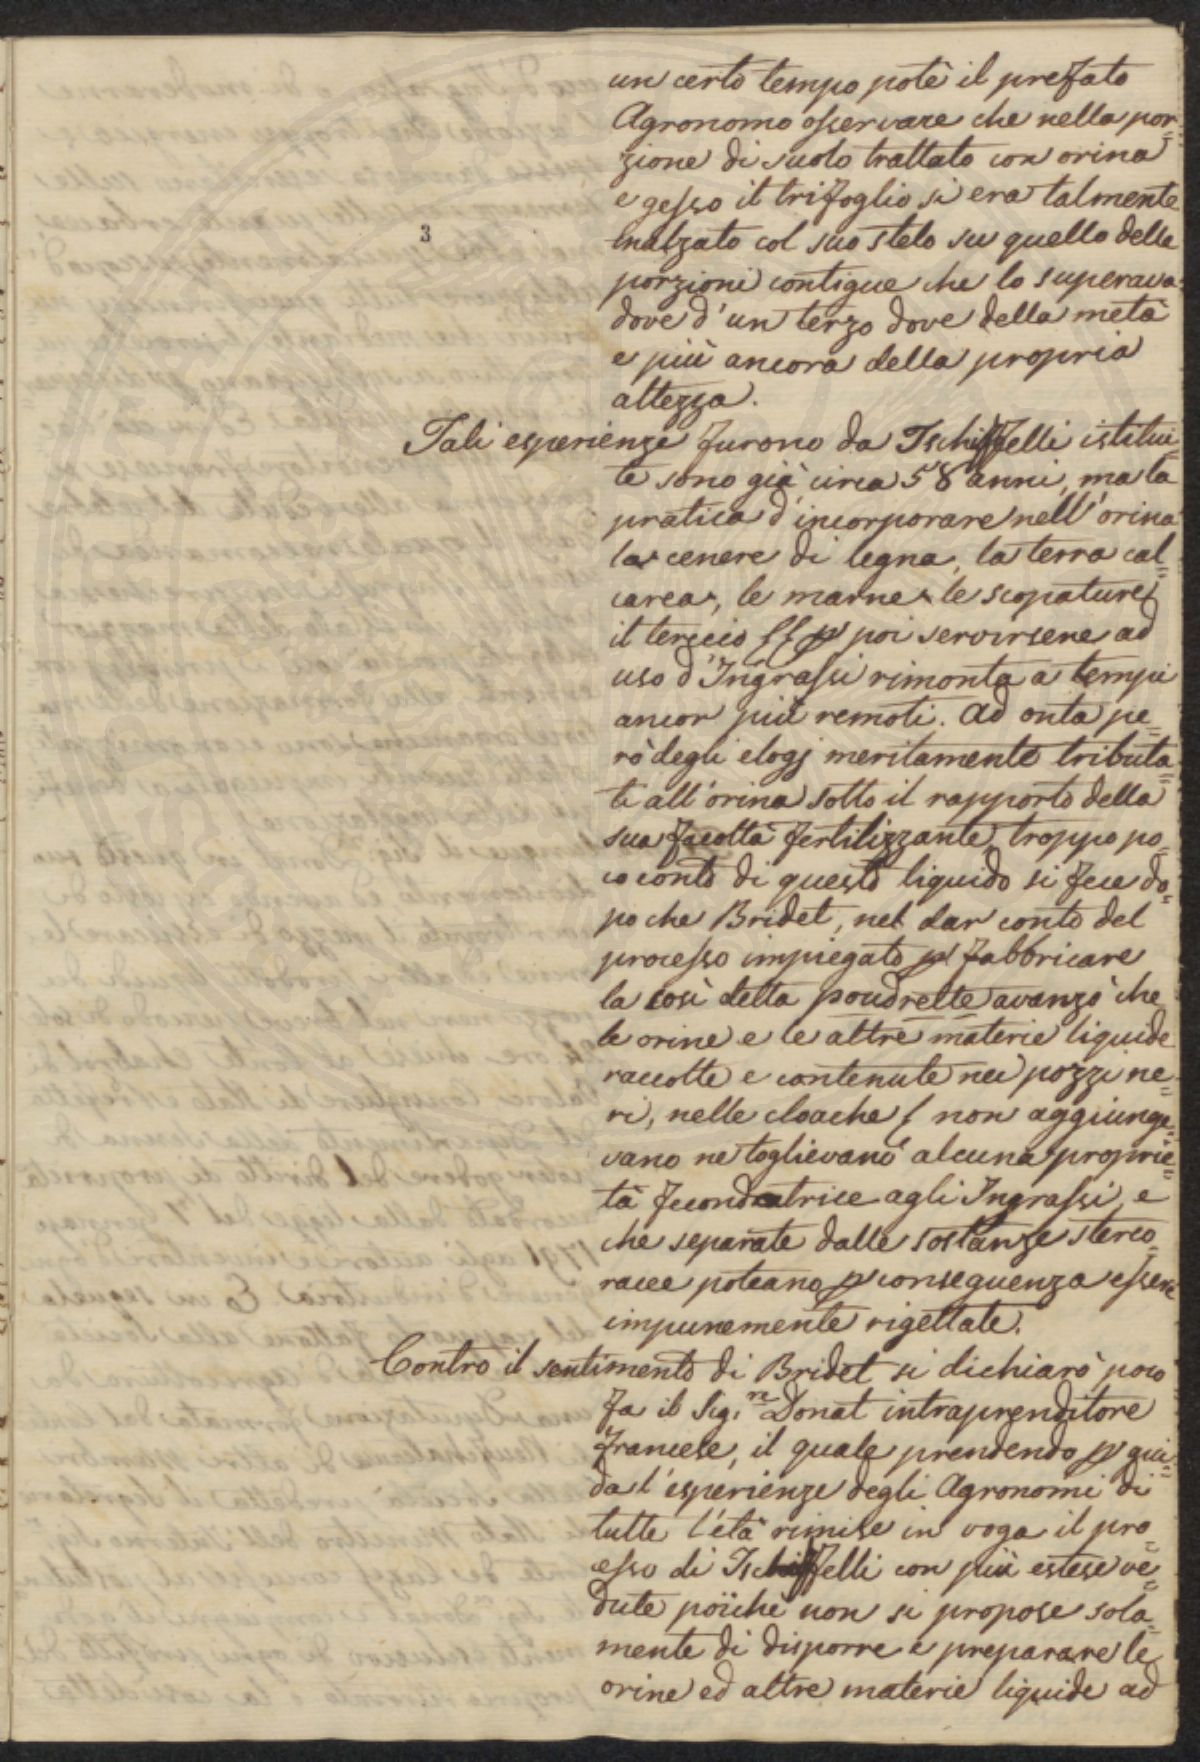 un certo tempo potè il prefato
Agronomo osservare che nella por=
zione di suolo trattato con orina
e gesso il trifoglio si era talmente
3
inalzato col suo stelo su quello delle
porzioni contigue che lo superava
dove d'un terzo dove della metà
e più ancora della propria
altezza.
Tali esperienze furono da Tschiffelli istitui=
te sono già circa 58 anni, ma la
pratica d'incorporare nell'orina
la cenere di legna, la terra cal=
carea, le marne, le scopature,
il terricio poi servirsene ad
uso d'Ingrassi rimonta a tempi
ancor più remoti. Ad onta pe=
rò degli elogj meritamente tributa=
ti all'orina sotto il rapporto della
sua facoltà fertilizzante, troppo po=
co conto di questo liquido si fece do=
po che Bridet, nel dar conto del
processo impiegato p fabbricare
la così detta poudrette avanzò che
le orine e le altre materie liquide
raccolte e contenute nei pozzi ne=
ri, nelle cloache non aggiunge=
vano ne toglievano alcuna proprie=
tà fecondatrice agli Ingrassi, e
che separate dalle sostanze sterco=
racee poteano p conseguenza essere
impunemente rigettate.
Contro il sentimento di Bridet si dichiarò poco
fa il Sig.r Donat intraprenditore
francese, il quale prendendo p gui=
da l'esperienze degli Agronomi di
tutte l'età rimise in voga il pro=
cesso di Tschiffelli con più estese ve=
dute poichè non si propose sola=
mente di disporre e preparare le
orine ed altre materie liquide ad